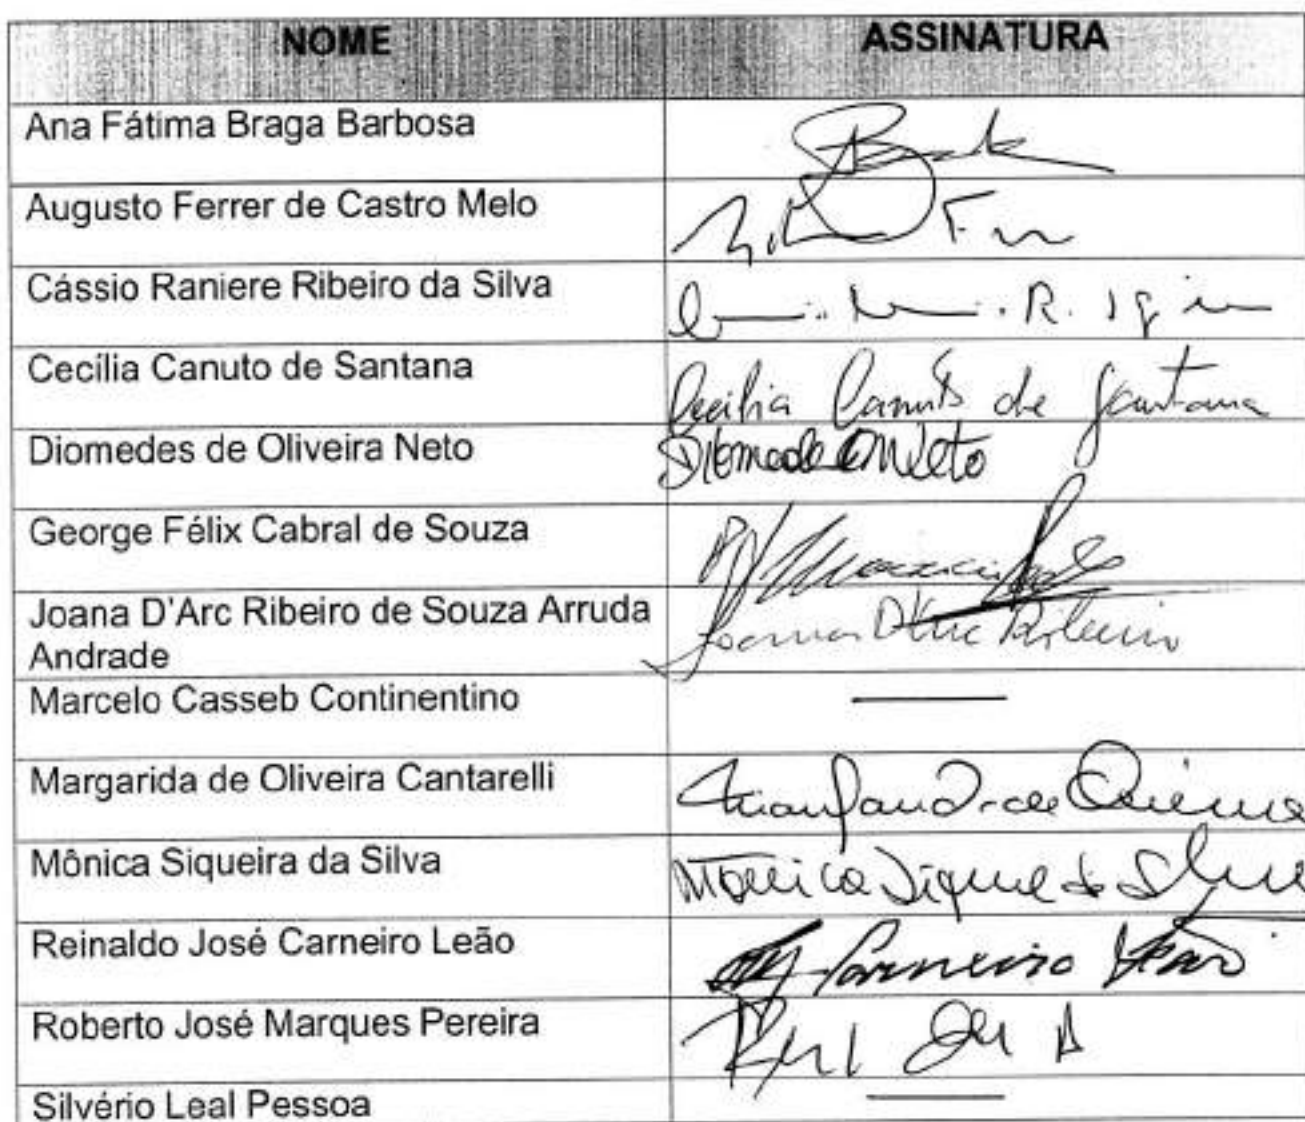 NOME ASSINATURA
Ana Fátima Braga Barbosa
Augusto Ferrer de Castro Melo
Cássio Raniere Ribeiro da Silva
Cecília Canuto de Santana Cecilia Canuto de Santana
Diomedes de Oliveira Neto
George Félix Cabral de Souza
Joana D'Arc Ribeiro de Souza Arruda Joana D'Arc Ribeiro
Andrade
Marcelo Casseb Continentino
Margarida de Oliveira Cantarelli
Mônica Siqueira da Silva
Reinaldo José Carneiro Leão Carneiro Leão
Roberto José Marques Pereira
Silvério Leal Pessoa